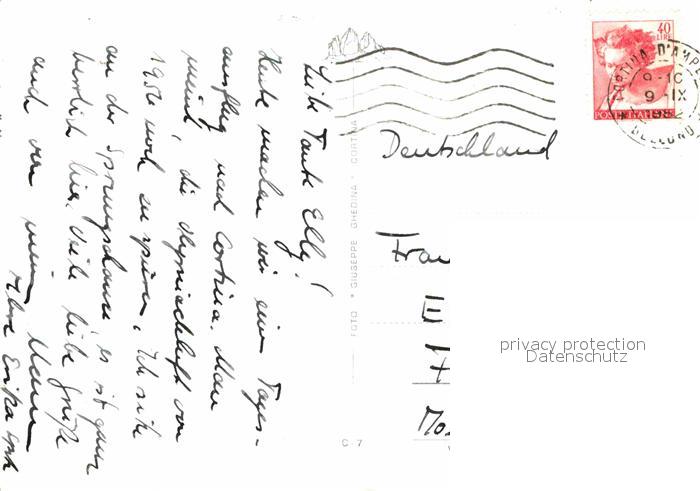 Liebe Tante Elly!
Heute machen wir einen Tages-
ausflug nach Cortina. Man
meint, die Olympialuft von
1956 noch zu spüren. Ich sitze
an der Sprungschanze, es ist ganz
herrlich hier. Viele liebe Grüße
auch von
Deine Erika
FOTO * GIUSEPPE GHEDINA * CORTINA
C - 7
Deutschland
Frau
E
H
Mo
40
LIRE
POSTE ITALIANE
CORTINA D'AMPEZZO
9-10
9 IX
BELLUNO
privacy protection
Datenschutz